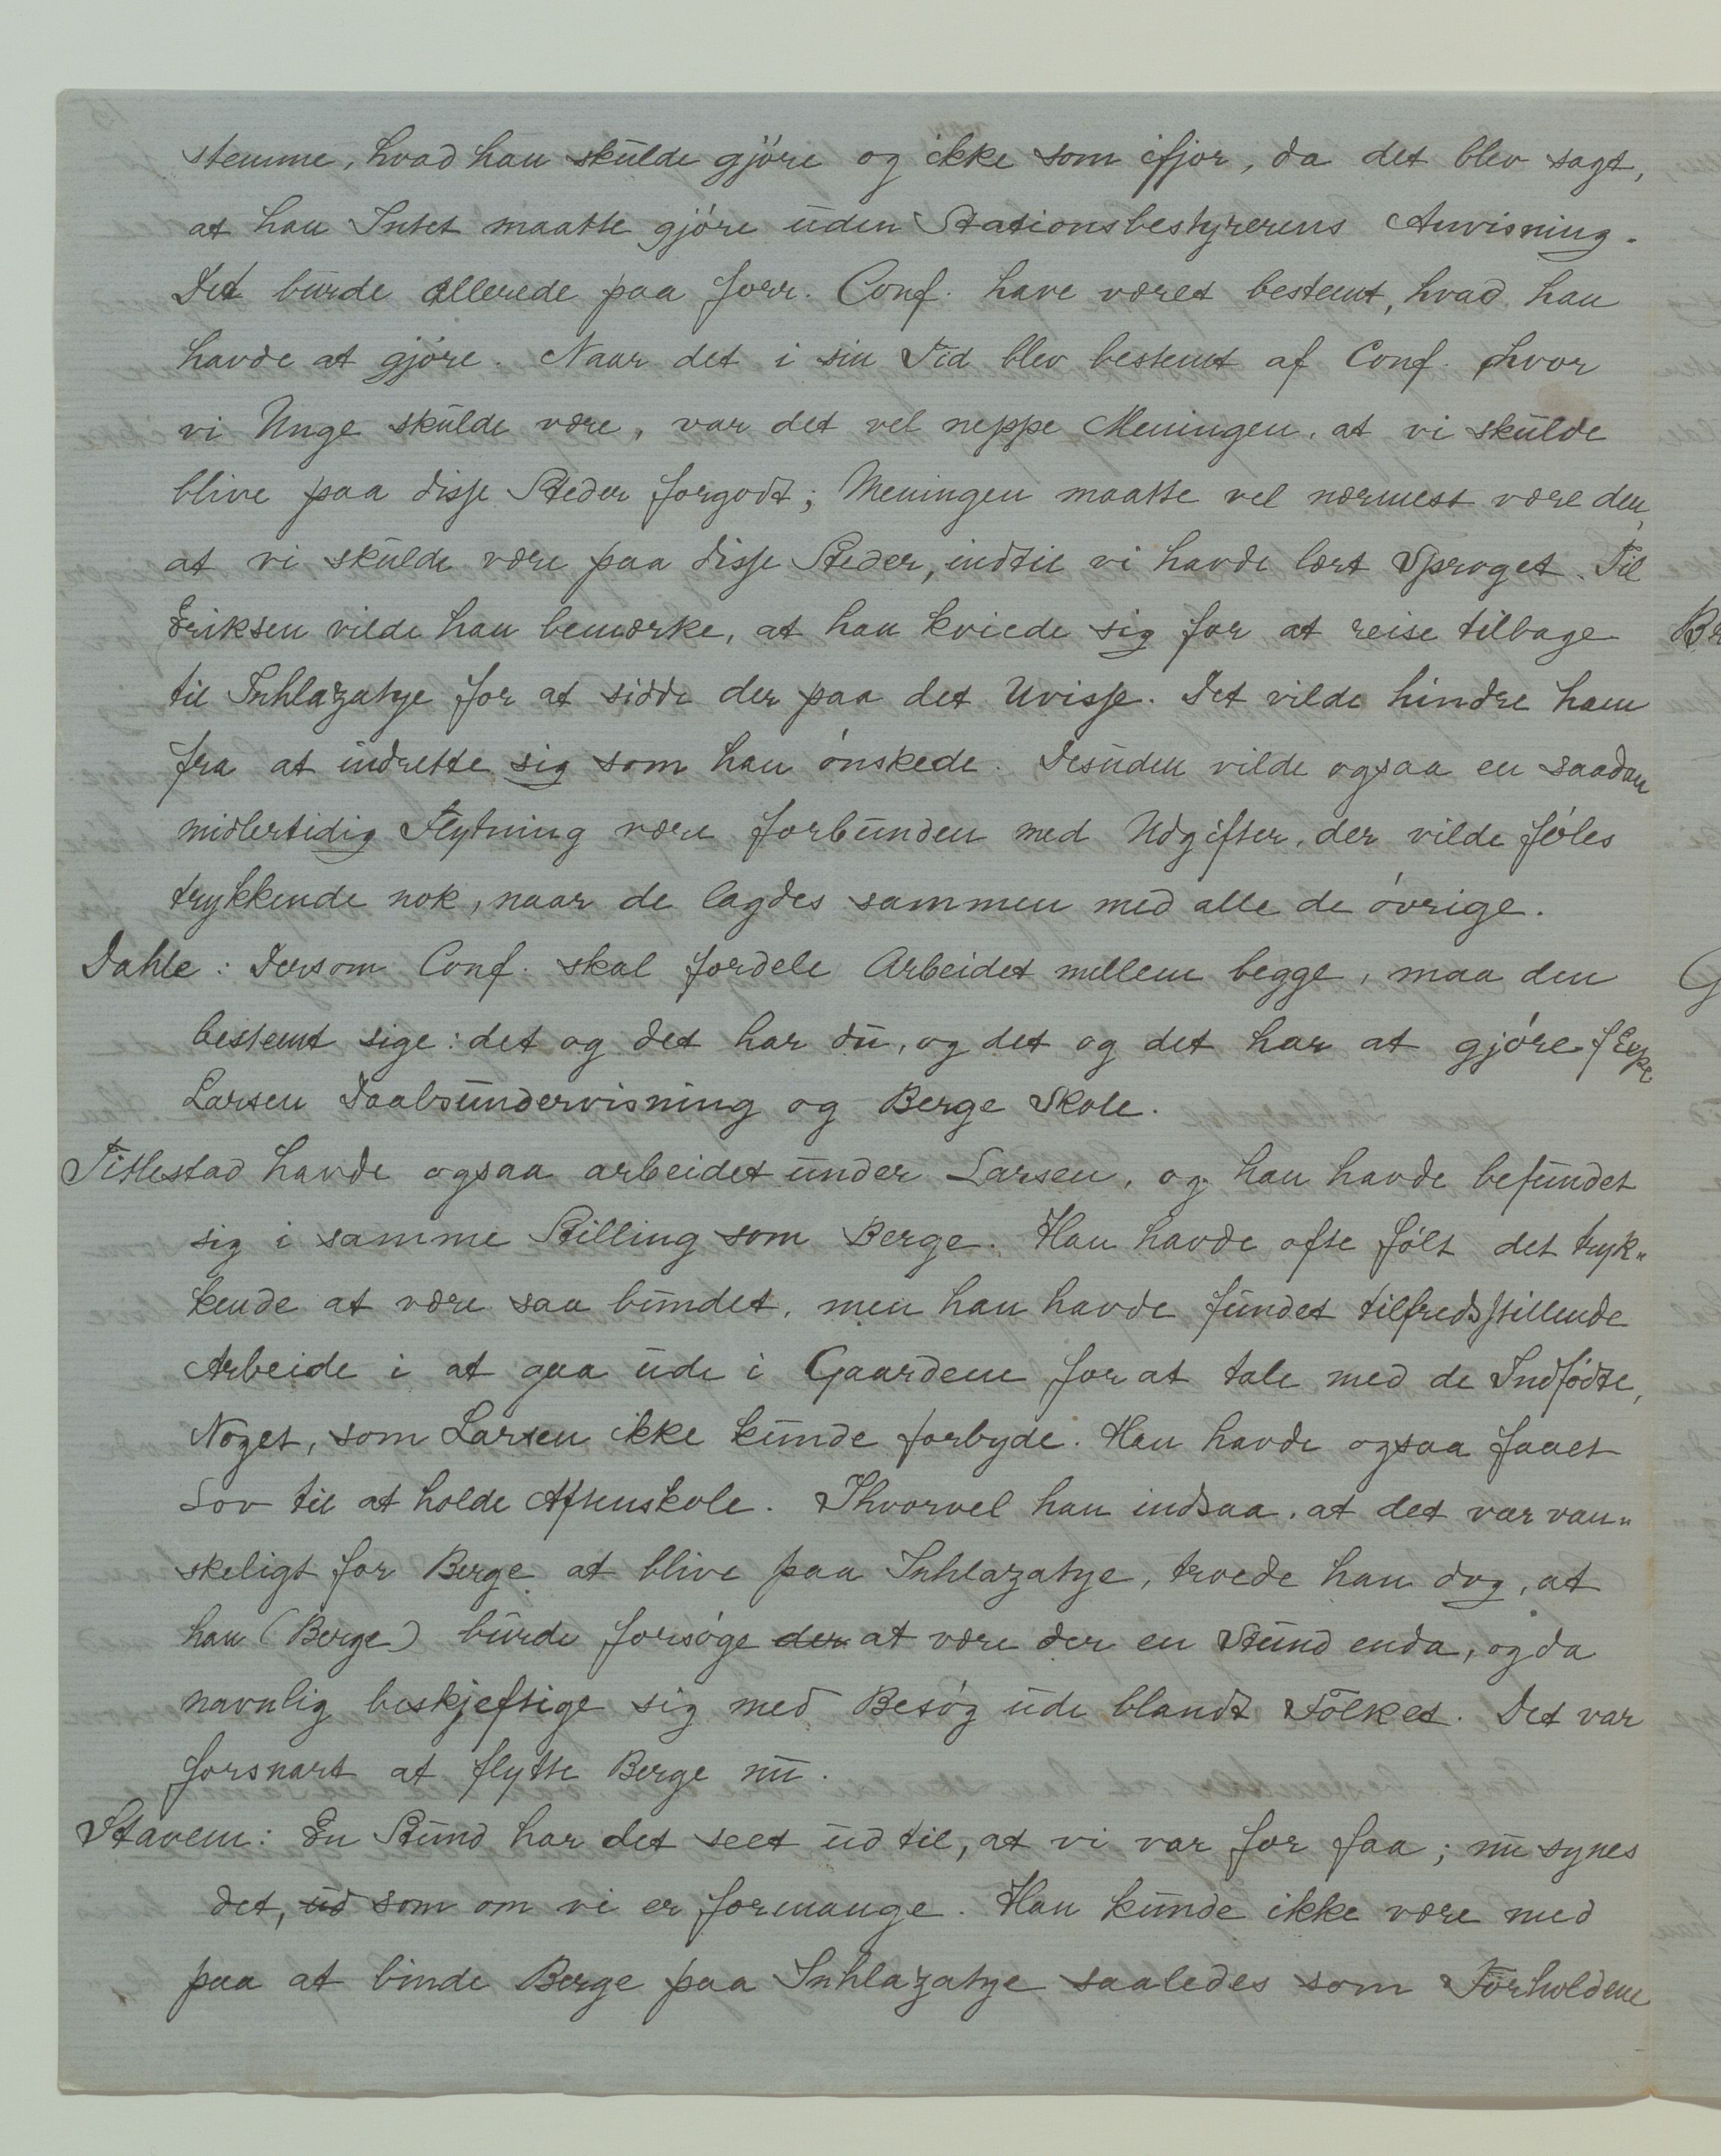 stemme, hvad han skulde gjöre og ikke som ifjor, da det blev sagt,
at han Intet maatte gjöre uden Stationsbestyrerens Anvisning.
Det burde allerede paa forr. Conf. have været bestemt, hvad han
havde at gjöre. Naar det i sin Tid blev bestemt af Conf. hvor
vi Unge skulde være, var det vel neppe Meningen, at vi skulde
blive paa disse Steder forgodt; Meningen maatte vel nærmest være den,
at vi skulde være paa disse Steder, indtil vi havde lært Sproget. Til
Eriksen vilde han bemærke, at han kviede sig for at reise tilbage
til Inhlazatye for at sidde der paa det Uvisse. Det vilde hindre ham
fra at indrette sig som han önskede. Desuden vilde ogsaa en saadan
midlertidig Flytning være forbunden med Udgifter, der vilde föles
trykkende nok, naar de lagdes sammen med alle de övrige.
Dahle: Dersom Conf. skal fordele Arbeidet mellem begge, maa den
bestemt sige: det og det har du, og det og det har at gjöre f Expl
Larsen Daabsundervisning og Berge Skole.
Titlestad havde ogsaa arbeidet under Larsen, og han havde befundet
sig i samme Stilling som Berge. Han havde ofte fölt det tryk„
kende at være saa bundet, men han havde fundet tilfredsstillende
Arbeide i at gaa ude i Gaardene for at tale med de Indfödte,
Noget, som Larsen ikke kunde forbyde. Han havde ogsaa faaet
Lov til at holde Aftenskole. Ihvorvel han indsaa, at det var van„
skeligt for Berge at blive paa Inhlazatye, troede han dog, at
han (Berge) burde forsöge der at være der en Stund enda, og da
navnlig beskjeftige sig med Besög ude blandt Folket. Det var
forsnart at flytte Berge nu.
Stavem: En Stund har det seet ud til, at vi var for faa; nu synes
det, ud som om vi er formange. Han kunde ikke være med
paa at binde Berge paa Inhlazatye saaledes som Forholdene